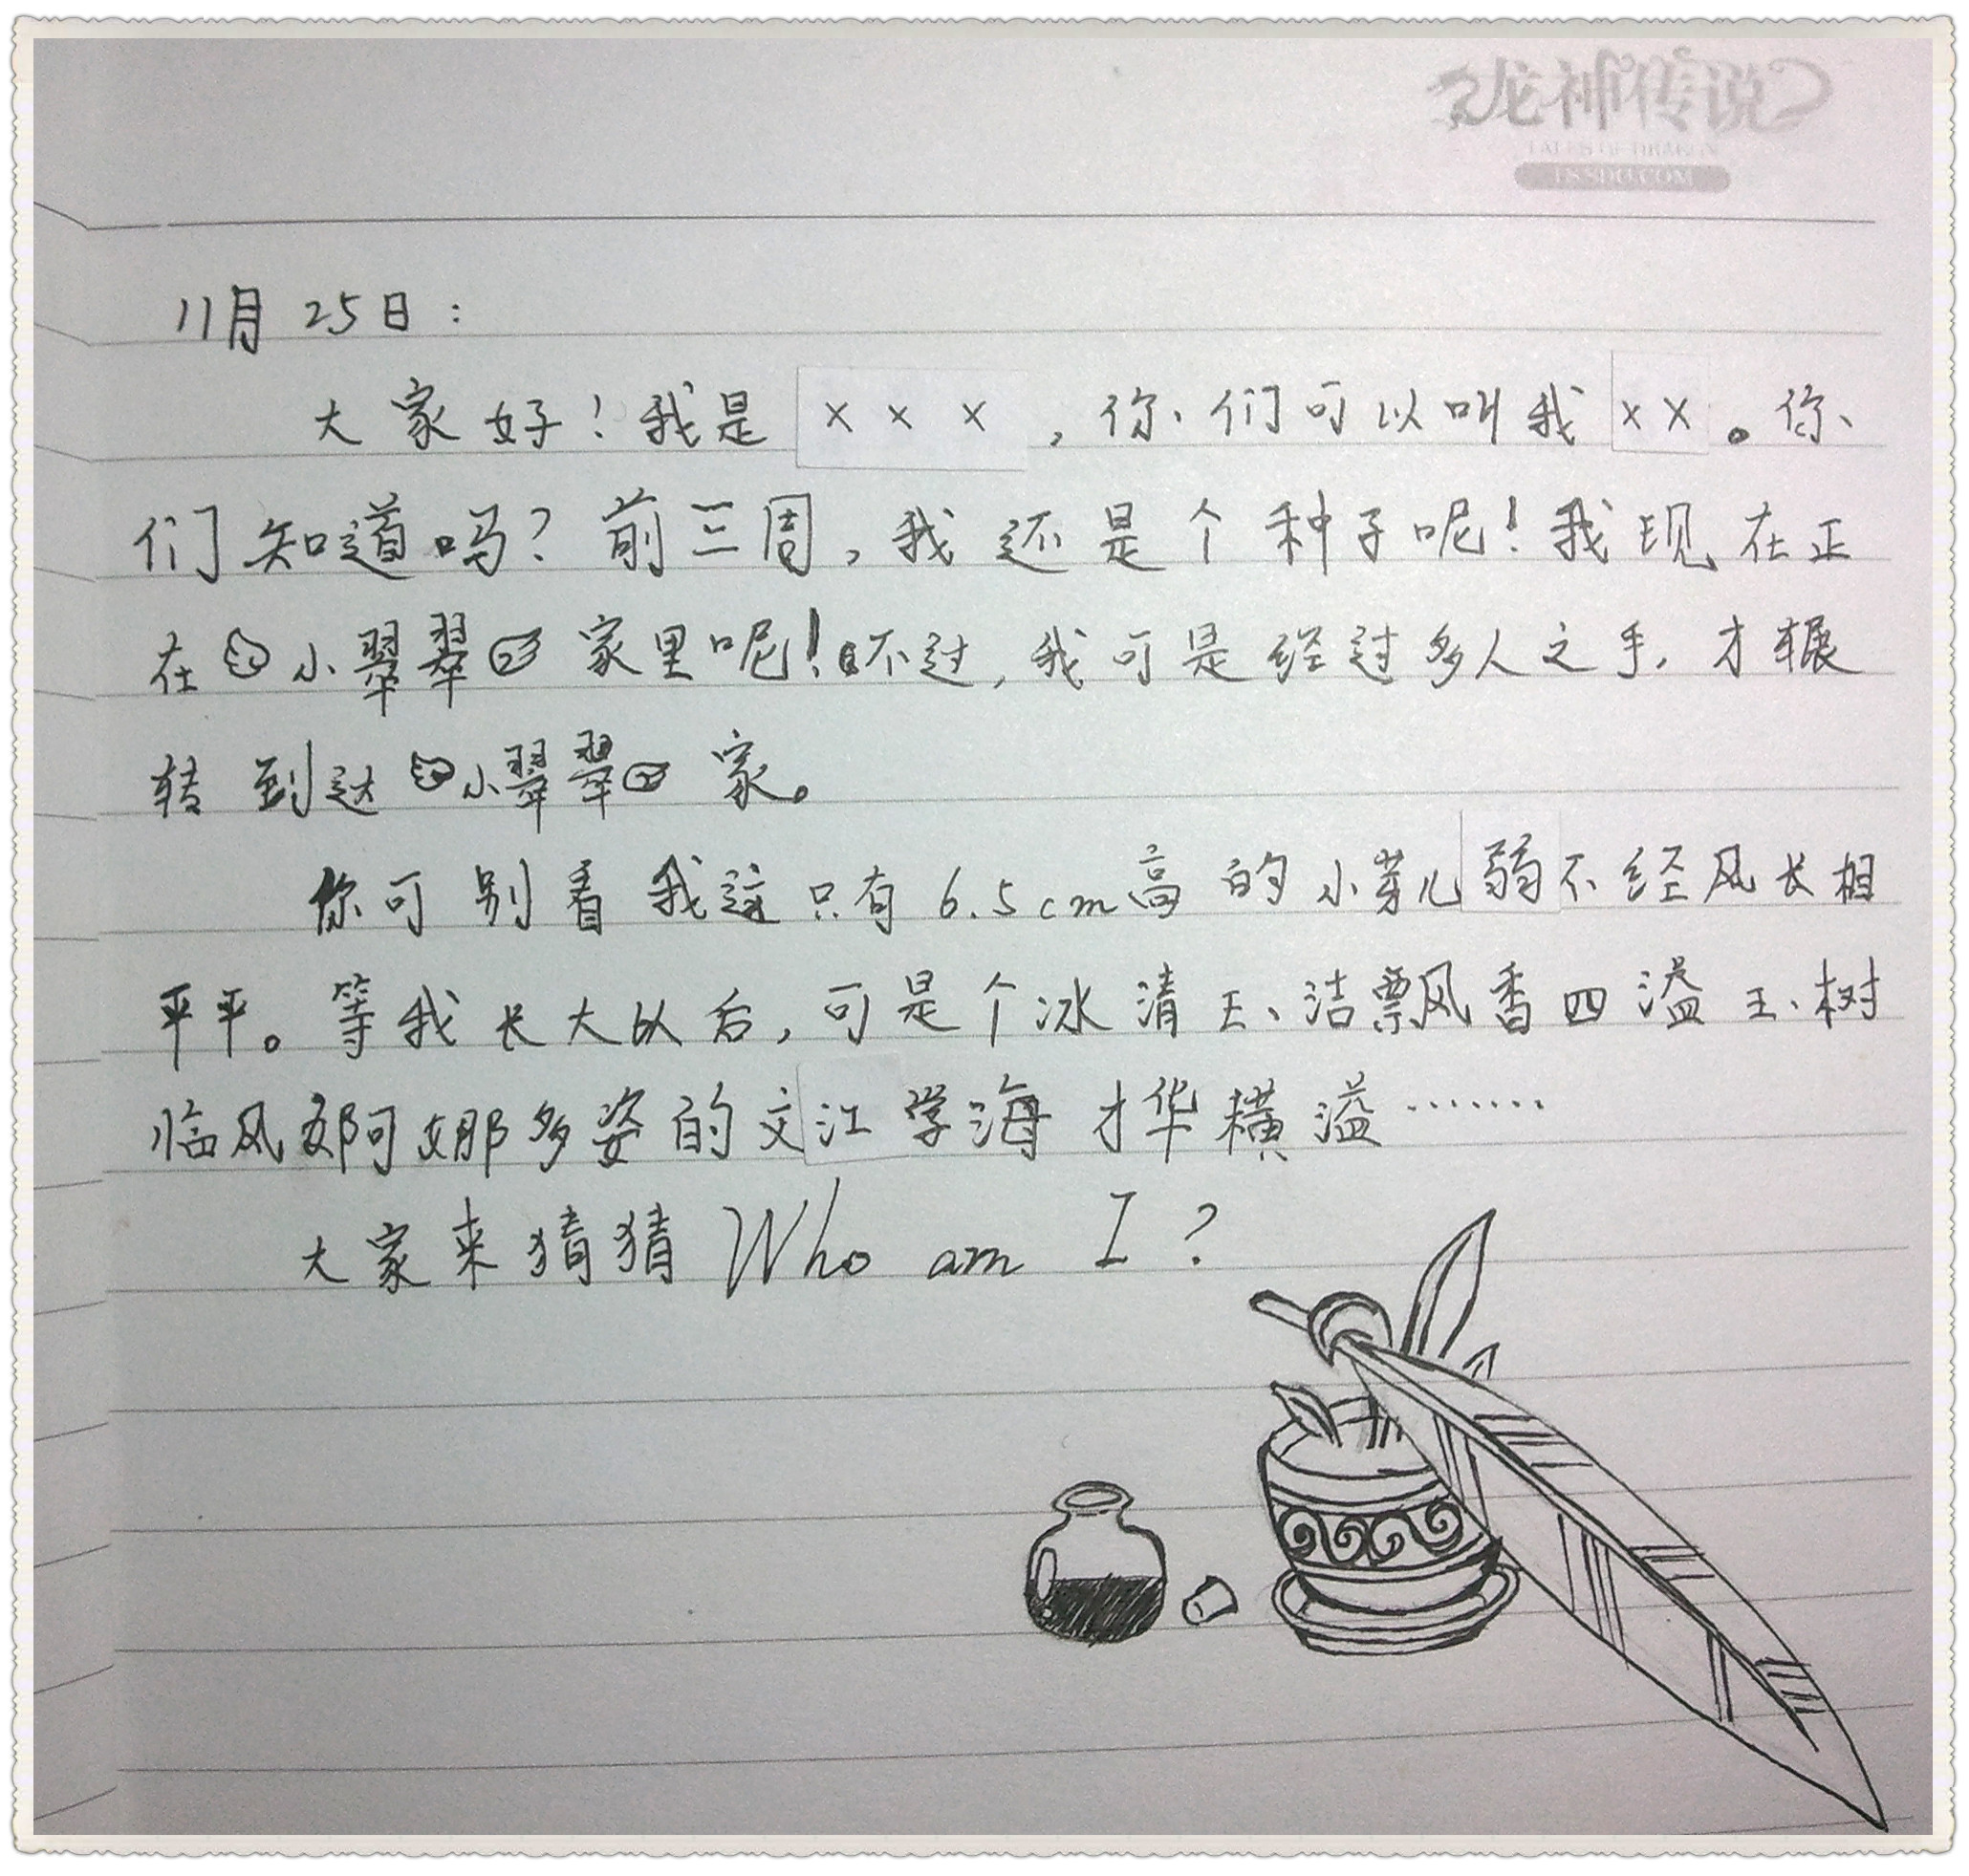 龙神传说
TALES OF DRAGON
11月25日：
大家好！我是×××，你们可以叫我××。你
们知道吗？前三周，我还是个种子呢！我现在正
在小翠翠家里呢！不过，我可是经过多人之手，才辗
转到达小翠翠家。
你可别看我这只有6.5cm高的小芽儿弱不经风长相
平平。等我长大以后，可是个冰清玉洁飘风香四溢玉树
临风婀娜多姿的文江学海才华横溢……
大家来猜猜Who am I？